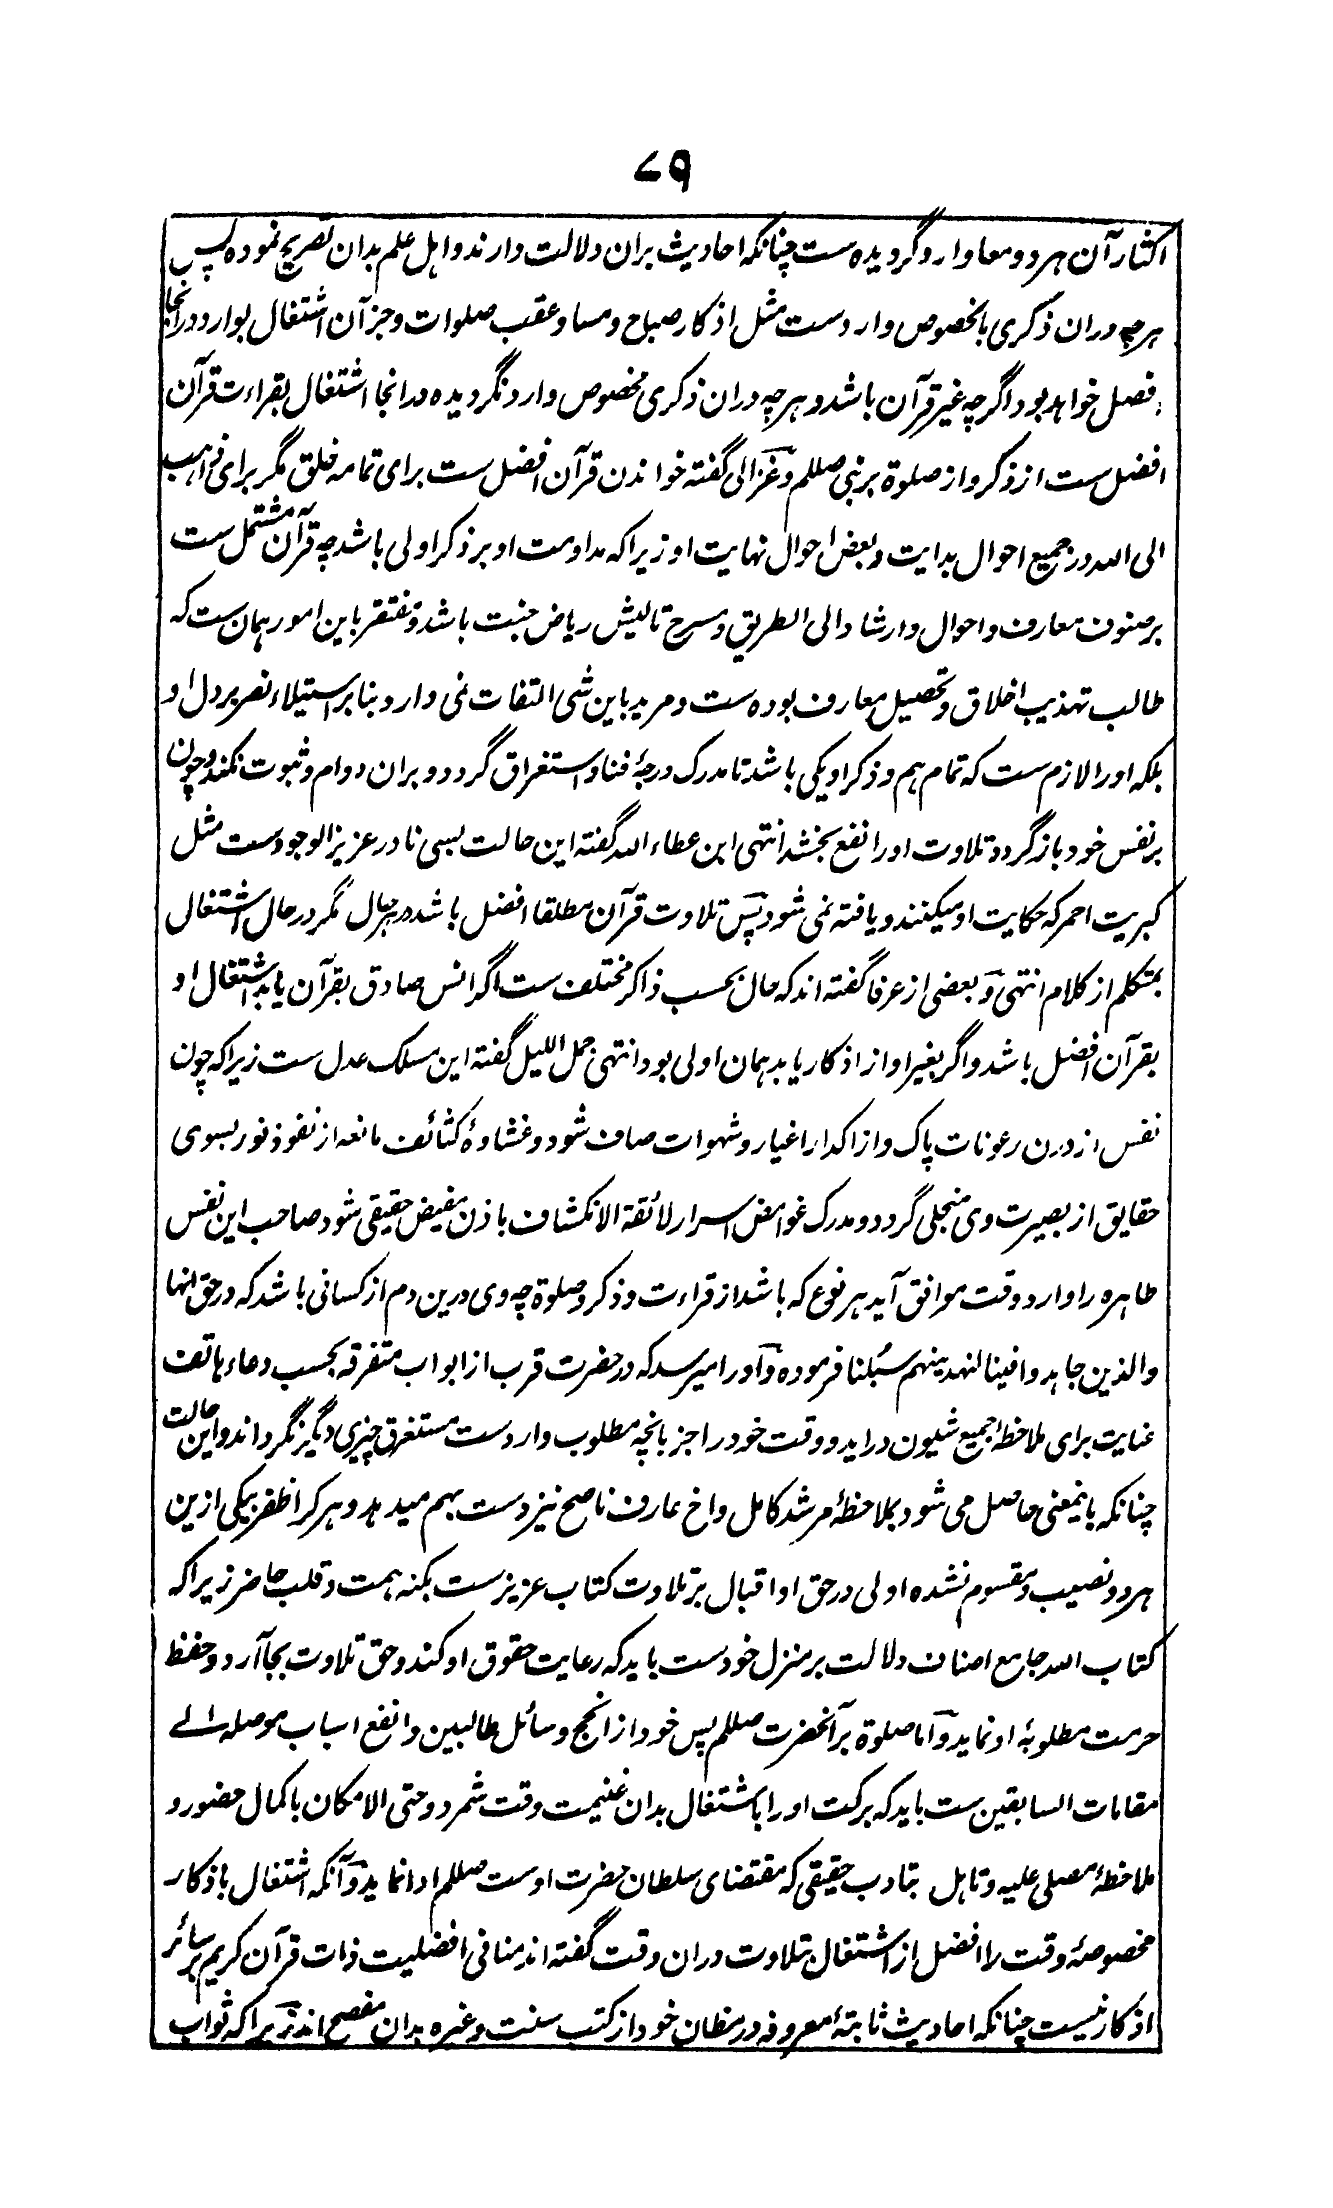 ۷۹
اکثار آن هر دو معا وارد گردیده ست چنانکه احادیث بران دلالت دارند و اهل علم بدان تصریح نموده پس
هرچه دران ذکری بالخصوص وارد ست مثل اذکار صباح و مسا و عقب صلوات و جز آن اشتغال بوارد درانجا
افضل خواهد بود اگرچه غیر قرآن باشد و هرچه دران ذکری مخصوص وارد نگردیده درانجا اشتغال بقراءت قرآن
افضل ست از ذکر و از صلوة بر نبی صللم و غزالی گفته خواندن قرآن افضل ست برای تمامه خلق مگر برای ذاهب
الی الله در جمیع احوال بدایت و بعض احوال نهایت او زیرا که مداومت او بر ذکر اولی باشد چه قرآن مشتمل ست
بر صنوف معارف و احوال و ارشاد الی الطریق و مسرح تالیش ریاض جنت باشد و مفتقر باین امور همان ست که
طالب تهذیب اخلاق و تحصیل معارف بوده ست و مرید باین شی التفات نمی دارد بنابر استیلاء نصر بر دل او
بلکه او را لازم ست که تمام هم و ذکر او یکی باشد تا مدرک درجهٔ فنا و استغراق گردد و بران دوام و ثبوت نکند و چون
بر نفس خود بازگردد تلاوت او را نفع بخشد انتهی ابن عطاء الله گفته این حالت بسی نادر عزیز الوجودست مثل
کبریت احمر که حکایت او میکنند و یافته نمی شود پس تلاوت قرآن مطلقا افضل باشد در هر حال مگر در حال اشتغال
بمتکلم از کلام انتهی و بعضی از عرفا گفته اند که حال بحسب ذاکر مختلف ست اگر انس صادق بقرآن یابد اشتغال او
بقرآن افضل باشد و اگر بغیر او از اذکار یابد همان اولی بود انتهی جمل اللیل گفته این مسلک عدل ست زیرا که چون
نفس از درن رعونات پاک و از اکدار اغیار و شهوات صاف شود و غشاوهٔ کثائف مانعه از نفوذ نور بسوی
حقایق از بصیرت وی منجلی گردد و مدرک غوامض اسرار لائقة الانکشاف باذن مفیض حقیقی شود صاحب این نفس
طاهره را وارد وقت موافق آید هر نوع که باشد از قراءت و ذکر و صلوة چه وی درین دم از کسانی باشد که در حق انها
والذین جاهدوا فینا لنهدینهم سبُلنا فرموده و او را میرسد که در حضرت قرب از ابواب متفرقه بحسب دعاء هاتف
عنایت برای ملاحظهٔ جمیع شیون دراید و وقت خود را جز بانچه مطلوب واردست مستغرق چیزی دیگر نگرداند و این حالت
چنانکه باینمعنی حاصل می شود بملاحظهٔ مرشد کامل و اخ عارف ناصح نیز دست بهم میدهد و هر کرا ظفر بیکی ازین
هر دو نصیب و مقسوم نشده اولی در حق او اقبال بر تلاوت کتاب عزیز ست بکنه همت و قلب حاضر زیرا که
کتاب الله جامع اصناف دلالت بر منزل خودست باید که رعایت حقوق او کند و حق تلاوت بجا آرد و حفظ
حرمت مطلوبهٔ او نماید و اما صلوة بر آنحضرت صللم پس خود از انجح وسائل طالبین و انفع اسباب موصله الے
مقامات السابقین ست باید که برکت او را باشتغال بدان غنیمت وقت شمرد و حتی الامکان باکمال حضور و
ملاحظهٔ مصلی علیه و تاهل بتادب حقیقی که مقتضای سلطان حضرت اوست صللم ادا نماید و آنکه اشتغال باذکار
مخصوصهٔ وقت را افضل از اشتغال بتلاوت دران وقت گفته اند منافی افضلیت ذات قرآن کریم بر سائر
اذکار نیست چنانکه احادیث ثابتهٔ معروفه در مظان خود از کتب سنت و غیره بدان مفصح اند زیرا که ثواب